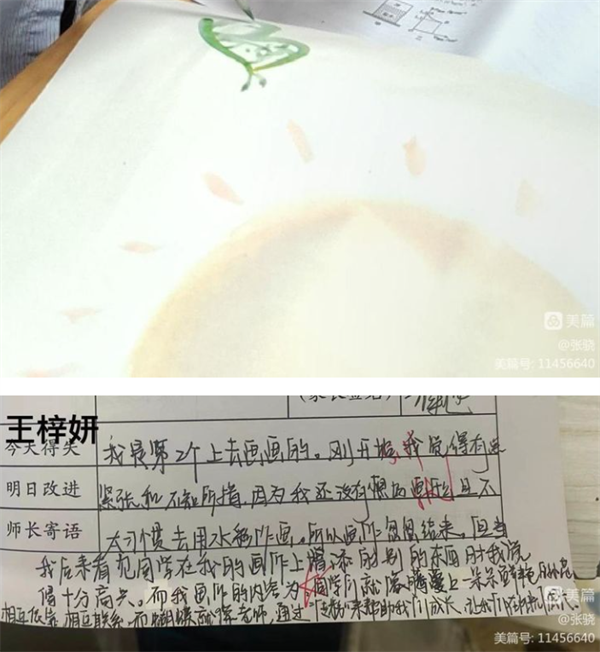 美篇
@张骁
美篇号: 11456640
王梓妍
今天得失
我是第2个上去画画的。刚开始,我觉得有些
明日改进
紧张和不知所措,因为我还没有想画且不
师长寄语
太习惯去用水彩作画。所以画作忽忽结束。但当
我后来看见同学在我的画作上增添的别的东西时我觉
得十分高兴。而我画作的内容为同学们就像藤蔓上一朵朵
相互依靠 相互联系 而蝴蝶就像老师,通过"传粉"来帮助我们成长、让我们
美篇
@张骁
美篇号: 11456640